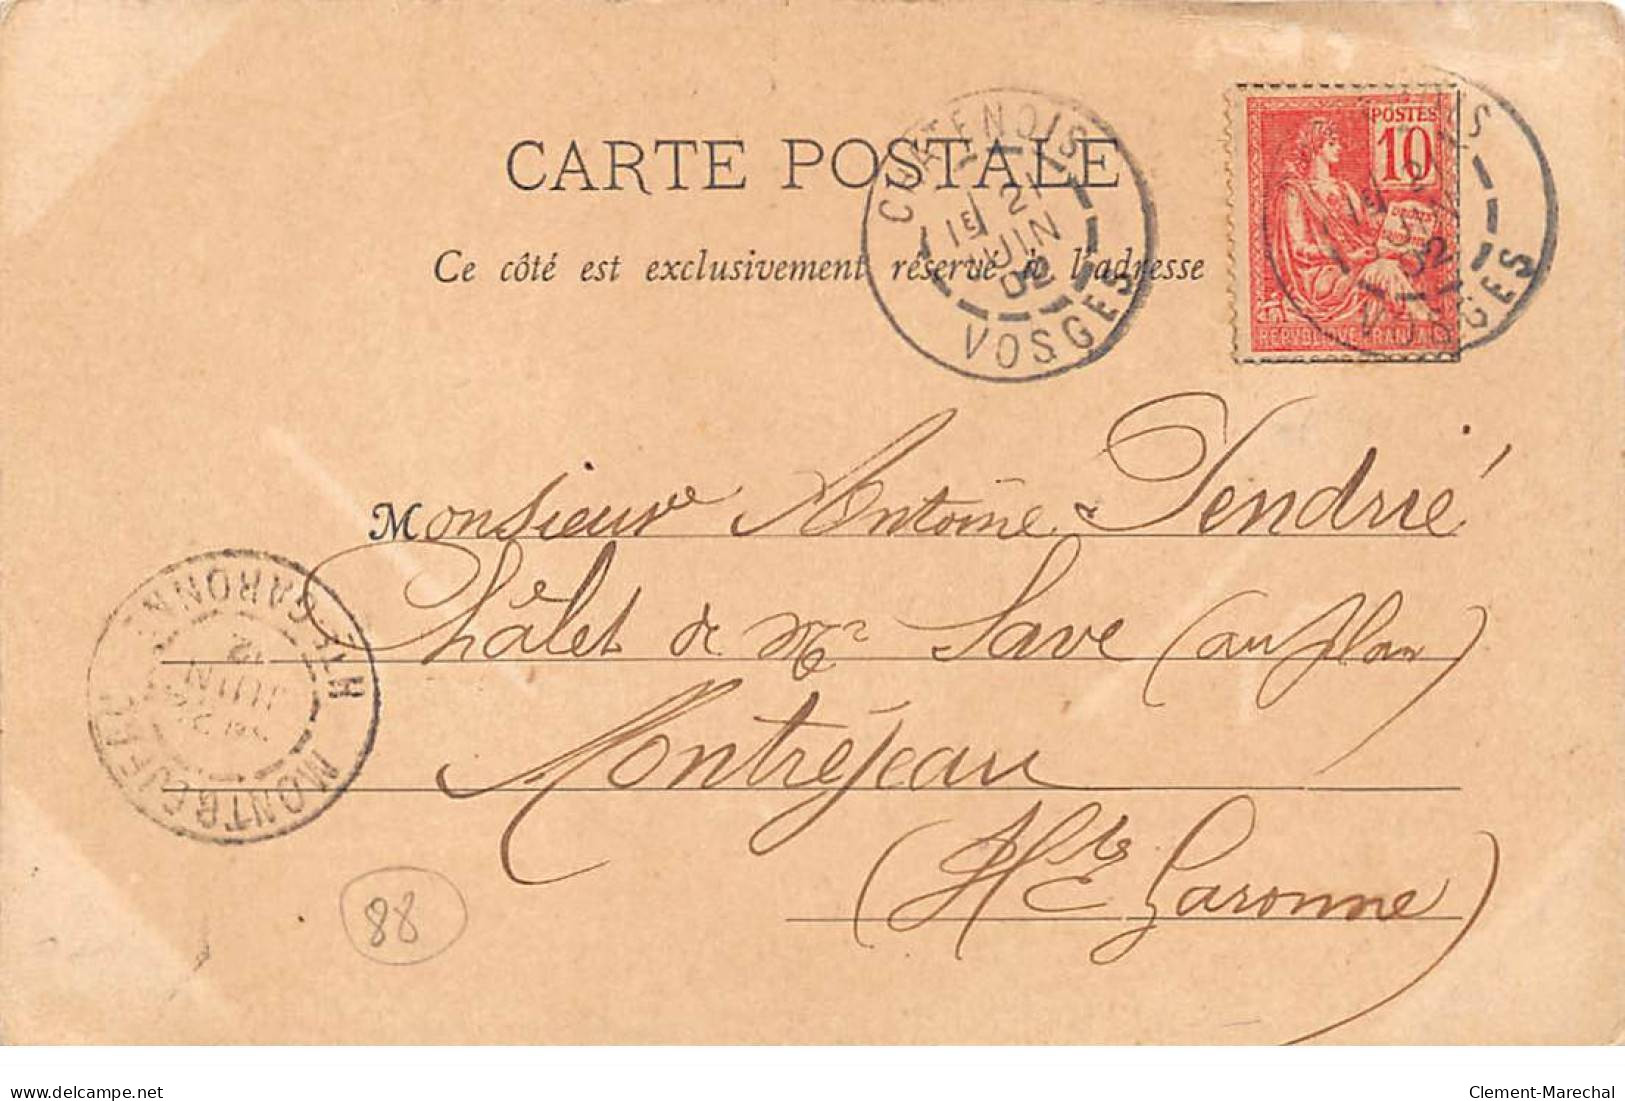 CARTE POSTALE
Ce côté est exclusivement réservé à l'adresse
CHATENOIS
1E 21
JUIN
02
VOSGES
POSTES
10
REPUBLIQUE FRANCAISE
1E 2
JUIN
02
VOSGES
Monsieur Antoine Sendrié
Châlet de Mr Save (au plan)
Montréjeau
(Hte Garonne)
HTE GARONNE
JUIN
02
MONTREJEAU
88
delcampe.net
Clement-Marechal